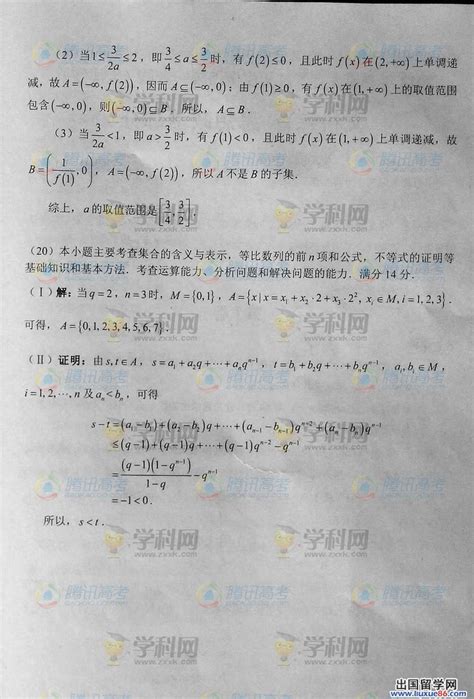 (2) 当1≤3/2a≤2，即3/4≤a≤3/2时，有f(2)≤0，且此时f(x)在(2,+∞)上单调递
减，故A=(-∞,f(2))，因而A⊆(-∞,0)；由f(1)≥0，有f(x)在(1,+∞)上的取值范围
包含(-∞,0)，则(-∞,0)⊆B．所以，A⊆B．
(3) 当3/2a<1，即a>3/2时，有f(1)<0，且此时f(x)在(1,+∞)上单调递减，故
B=(1/f(1),0)，A=(-∞,f(2))，所以A不是B的子集．
综上，a的取值范围是[3/4,3/2]．
(20) 本小题主要考查集合的含义与表示，等比数列的前n项和公式，不等式的证明等
基础知识和基本方法．考查运算能力、分析问题和解决问题的能力．满分14分．
(Ⅰ) 解：当q=2，n=3时，M={0,1}，A={x|x=x₁+x₂·2+x₃·2²,xᵢ∈M,i=1,2,3}．
可得，A={0,1,2,3,4,5,6,7}．
(Ⅱ) 证明：由s,t∈A，s=a₁+a₂q+⋯+aₙqⁿ⁻¹，t=b₁+b₂q+⋯+bₙqⁿ⁻¹，aᵢ,bᵢ∈M，
i=1,2,⋯,n及aₙ<bₙ，可得
s-t=(a₁-b₁)+(a₂-b₂)q+⋯+(aₙ₋₁-bₙ₋₁)qⁿ⁻²+(aₙ-bₙ)qⁿ⁻¹
≤(q-1)+(q-1)q+⋯+(q-1)qⁿ⁻²-qⁿ⁻¹
=(q-1)(1-qⁿ⁻¹)/1-q-qⁿ⁻¹
=-1<0．
所以，s<t．
出国留学网
www.liuxue86.com